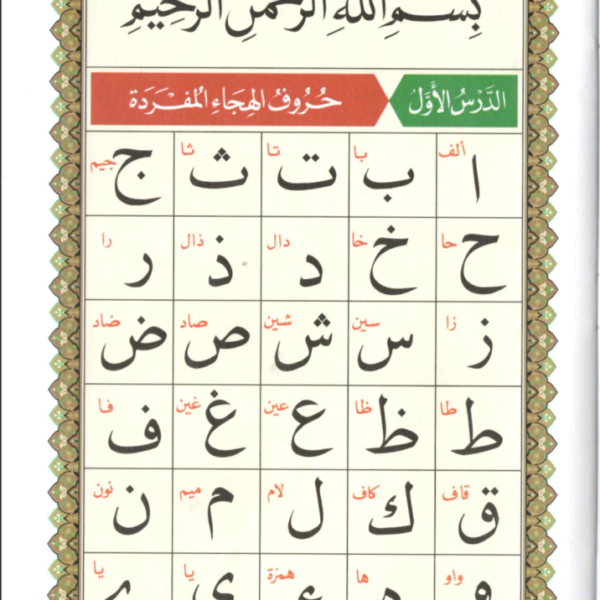 بِسْمِ اللهِ الرَّحْمٰنِ الرَّحِيْمِ
الدَّرْسُ الأَوَّلُ حُرُوفُ الهِجَاءِ المُفْرَدَة
ا ألف ب با ت تا ث ثا ج جيم
ح حا خ خا د دال ذ ذال ر را
ز زا س سين ش شين ص صاد ض ضاد
ط طا ظ ظا ع عين غ غين ف فا
ق قاف ك كاف ل لام م ميم ن نون
و واو ه ها ء همزة ي يا ے يا